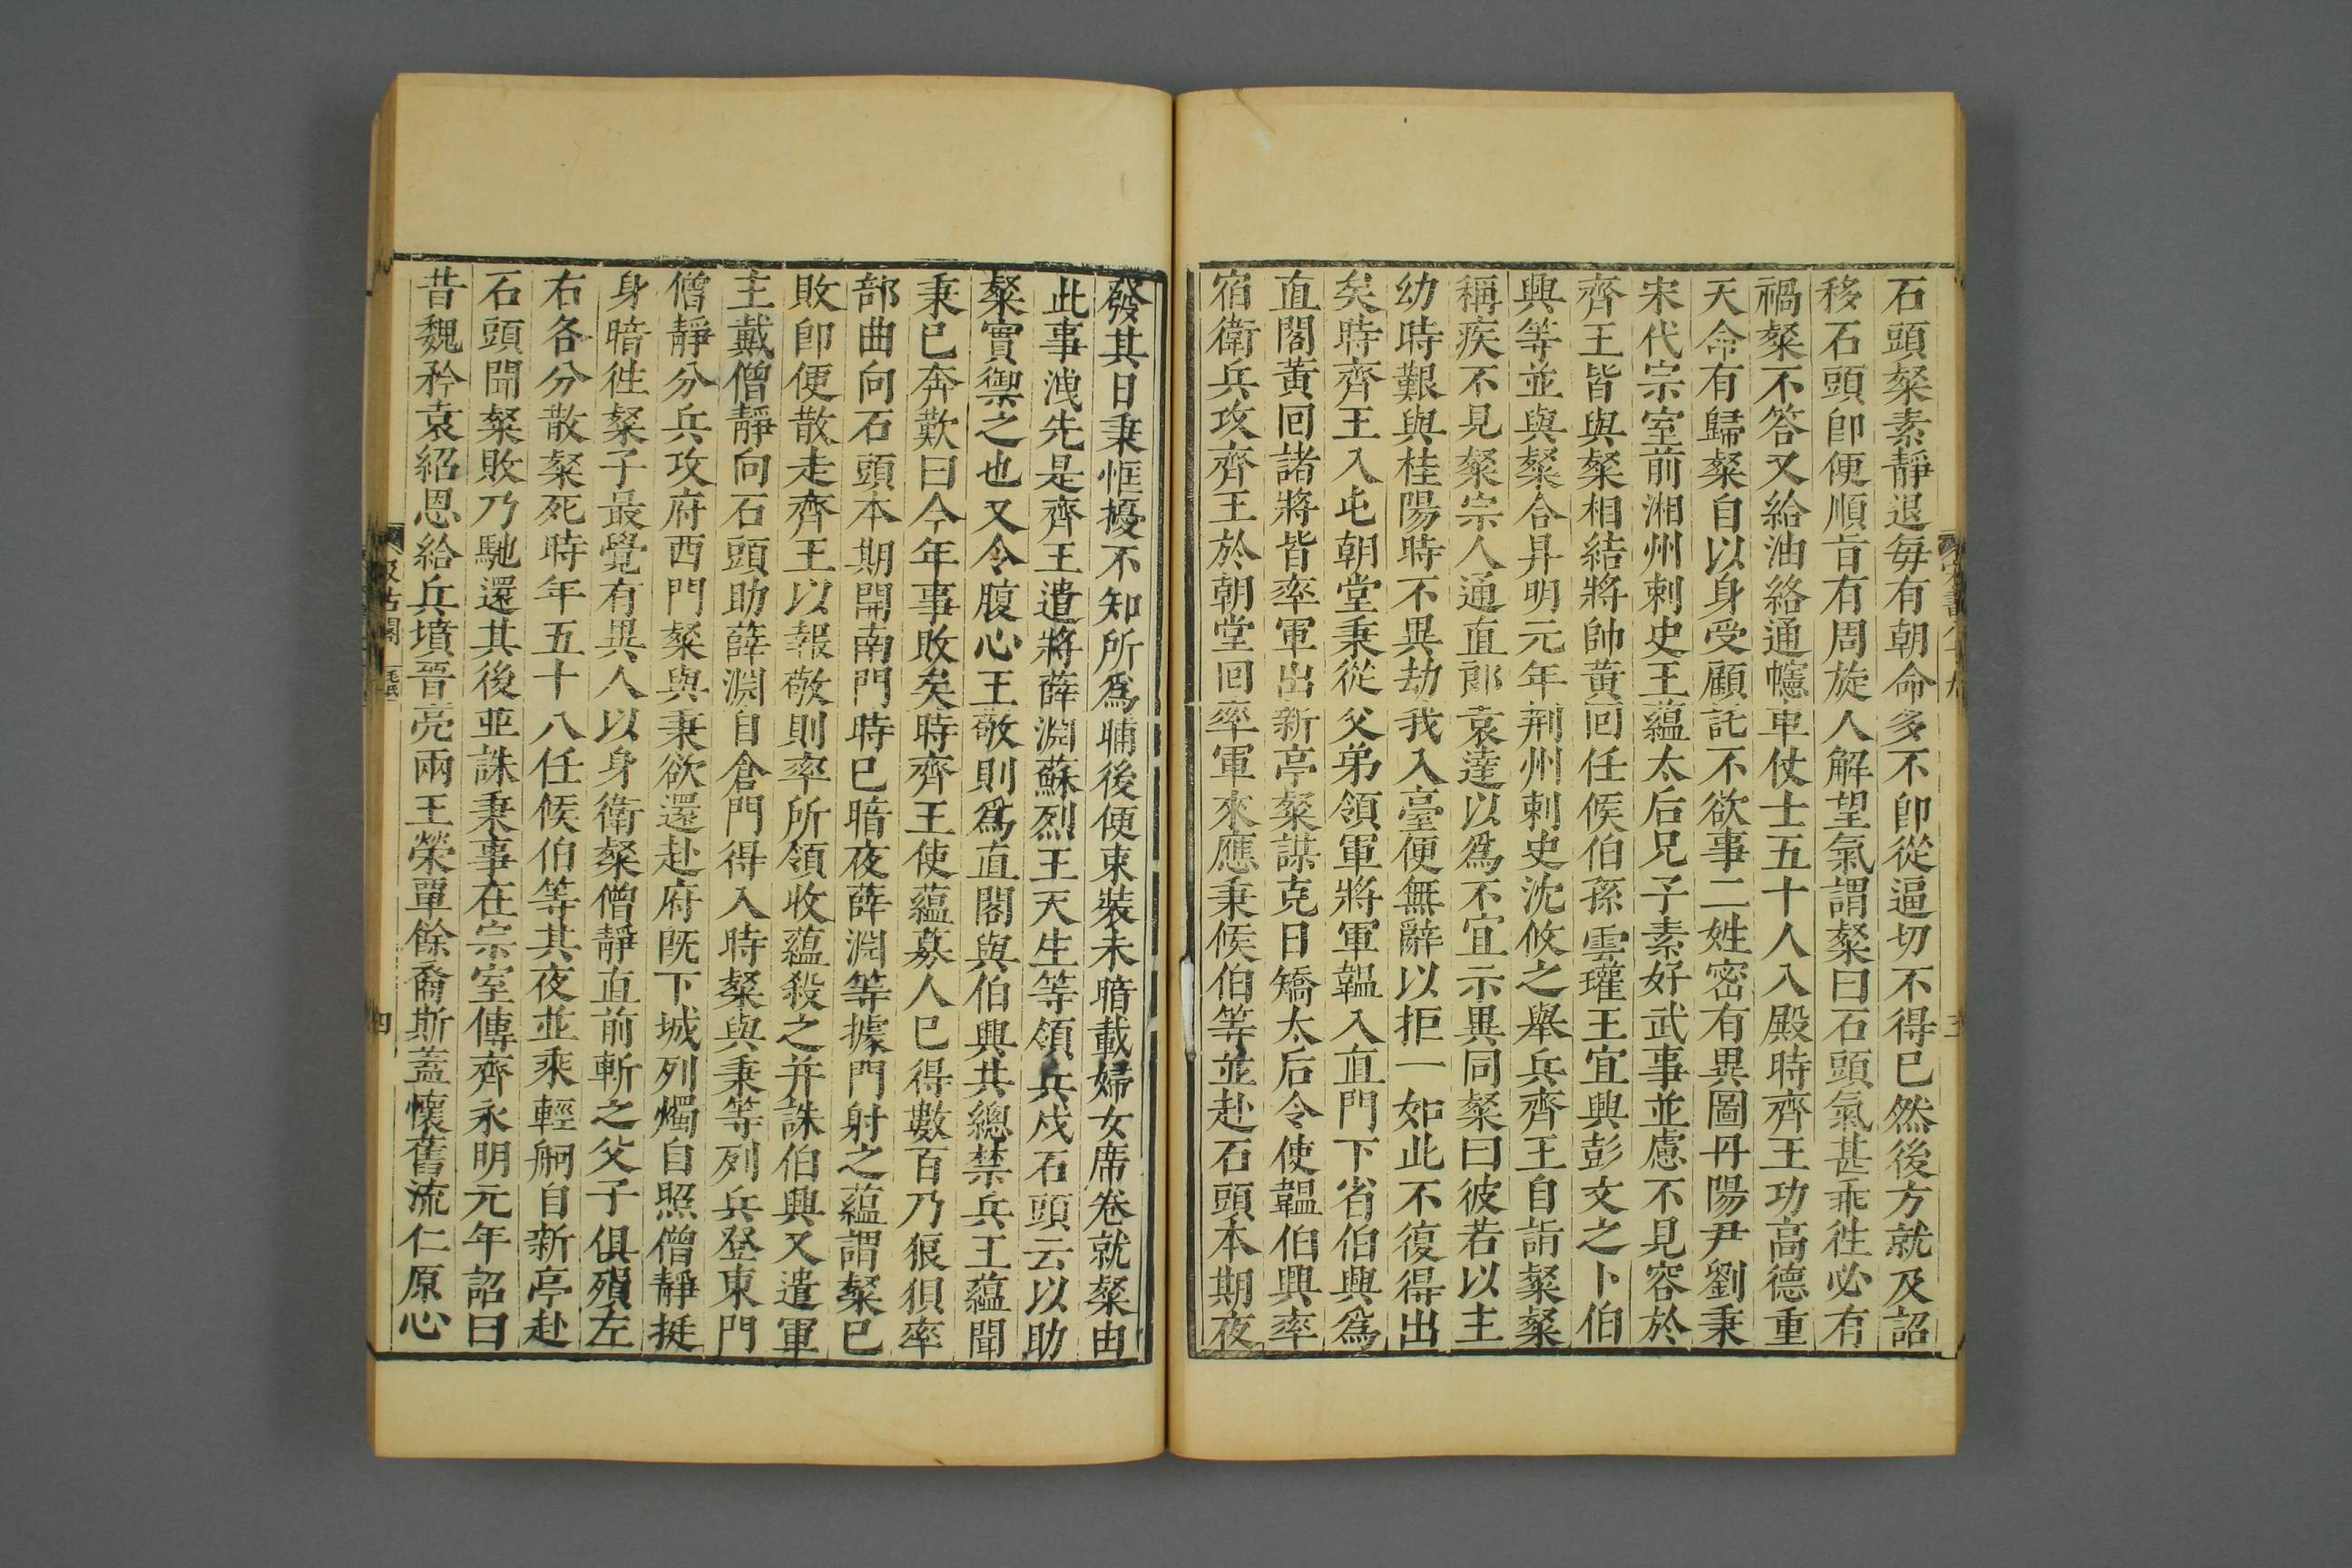 石頭粲素靜退每有朝命多不即從逼切不得已然後方就及詔
移石頭即便順旨有周旋人解望氣謂粲曰石頭氣甚乖往必有
禍粲不答又給油絡通幰車仗士五十人入殿時齊王功高德重
天命有歸粲自以身受顧託不欲事二姓密有異圖丹陽尹劉秉
宋代宗室前湘州刺史王蘊太后兄子素好武事並慮不見容於
齊王皆與粲相結將帥黃回任候伯孫雲瓘王宜興彭文之卜伯
興等並與粲合昇明元年荊州刺史沈攸之舉兵齊王自詣粲粲
稱疾不見粲宗人通直郎袁達以為不宜示異同粲曰彼若以主
幼時艱與桂陽時不異劫我入臺便無辭以拒一如此不復得出
矣時齊王入屯朝堂秉從父弟領軍將軍韞入直門下省伯興為
直閣黃回諸將皆率軍出新亭粲謀克日矯太后令使韞伯興率
宿衛兵攻齊王於朝堂回率軍來應秉候伯等並赴石頭本期夜
發其日秉恇擾不知所為晡後便束裝未暗載婦女席卷就粲由
此事洩先是齊王遣將薛淵蘇烈王天生等領兵戍石頭云以助
粲實禦之也又令腹心王敬則為直閣與伯興共總禁兵王蘊聞
秉已奔歎曰今年事敗矣時齊王使蘊募人已得數百乃狼狽率
部曲向石頭本期開南門時已暗夜薛淵等據門射之蘊謂粲已
敗即便散走齊王以報敬則率所領收蘊殺之并誅伯興又遣軍
主戴僧靜向石頭助薛淵自倉門得入時粲與秉等列兵登東門
僧靜分兵攻府西門粲與秉欲還赴府既下城列燭自照僧靜挺
身暗往粲子最覺有異人以身衛粲僧靜直前斬之父子俱殞左
右各分散粲死時年五十八任候伯等其夜並乘輕舸自新亭赴
石頭聞粲敗乃馳還其後並誅秉事在宗室傳齊永明元年詔曰
昔魏矜袁紹恩給兵墳晉亮兩王榮覃餘裔斯蓋懷舊流仁原心
汲古閣
毛氏
四